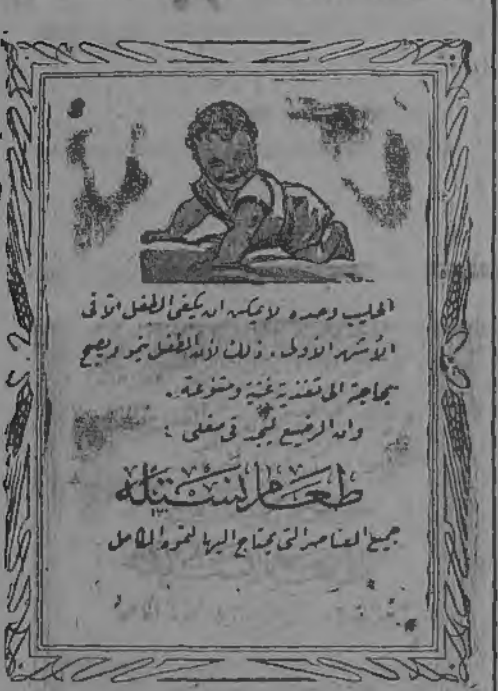 الحليب وحده لا يمكن ان يكفي الطفل الا في
الأشهر الأولى. ذلك لأن الطفل ينمو ويصبح
بحاجة الى تغذية غنية ومتنوعة.
وان الرضيع ليجد في مغلي :
طعام نستله
جميع العناصر التي يحتاج اليها لنموه الكامل